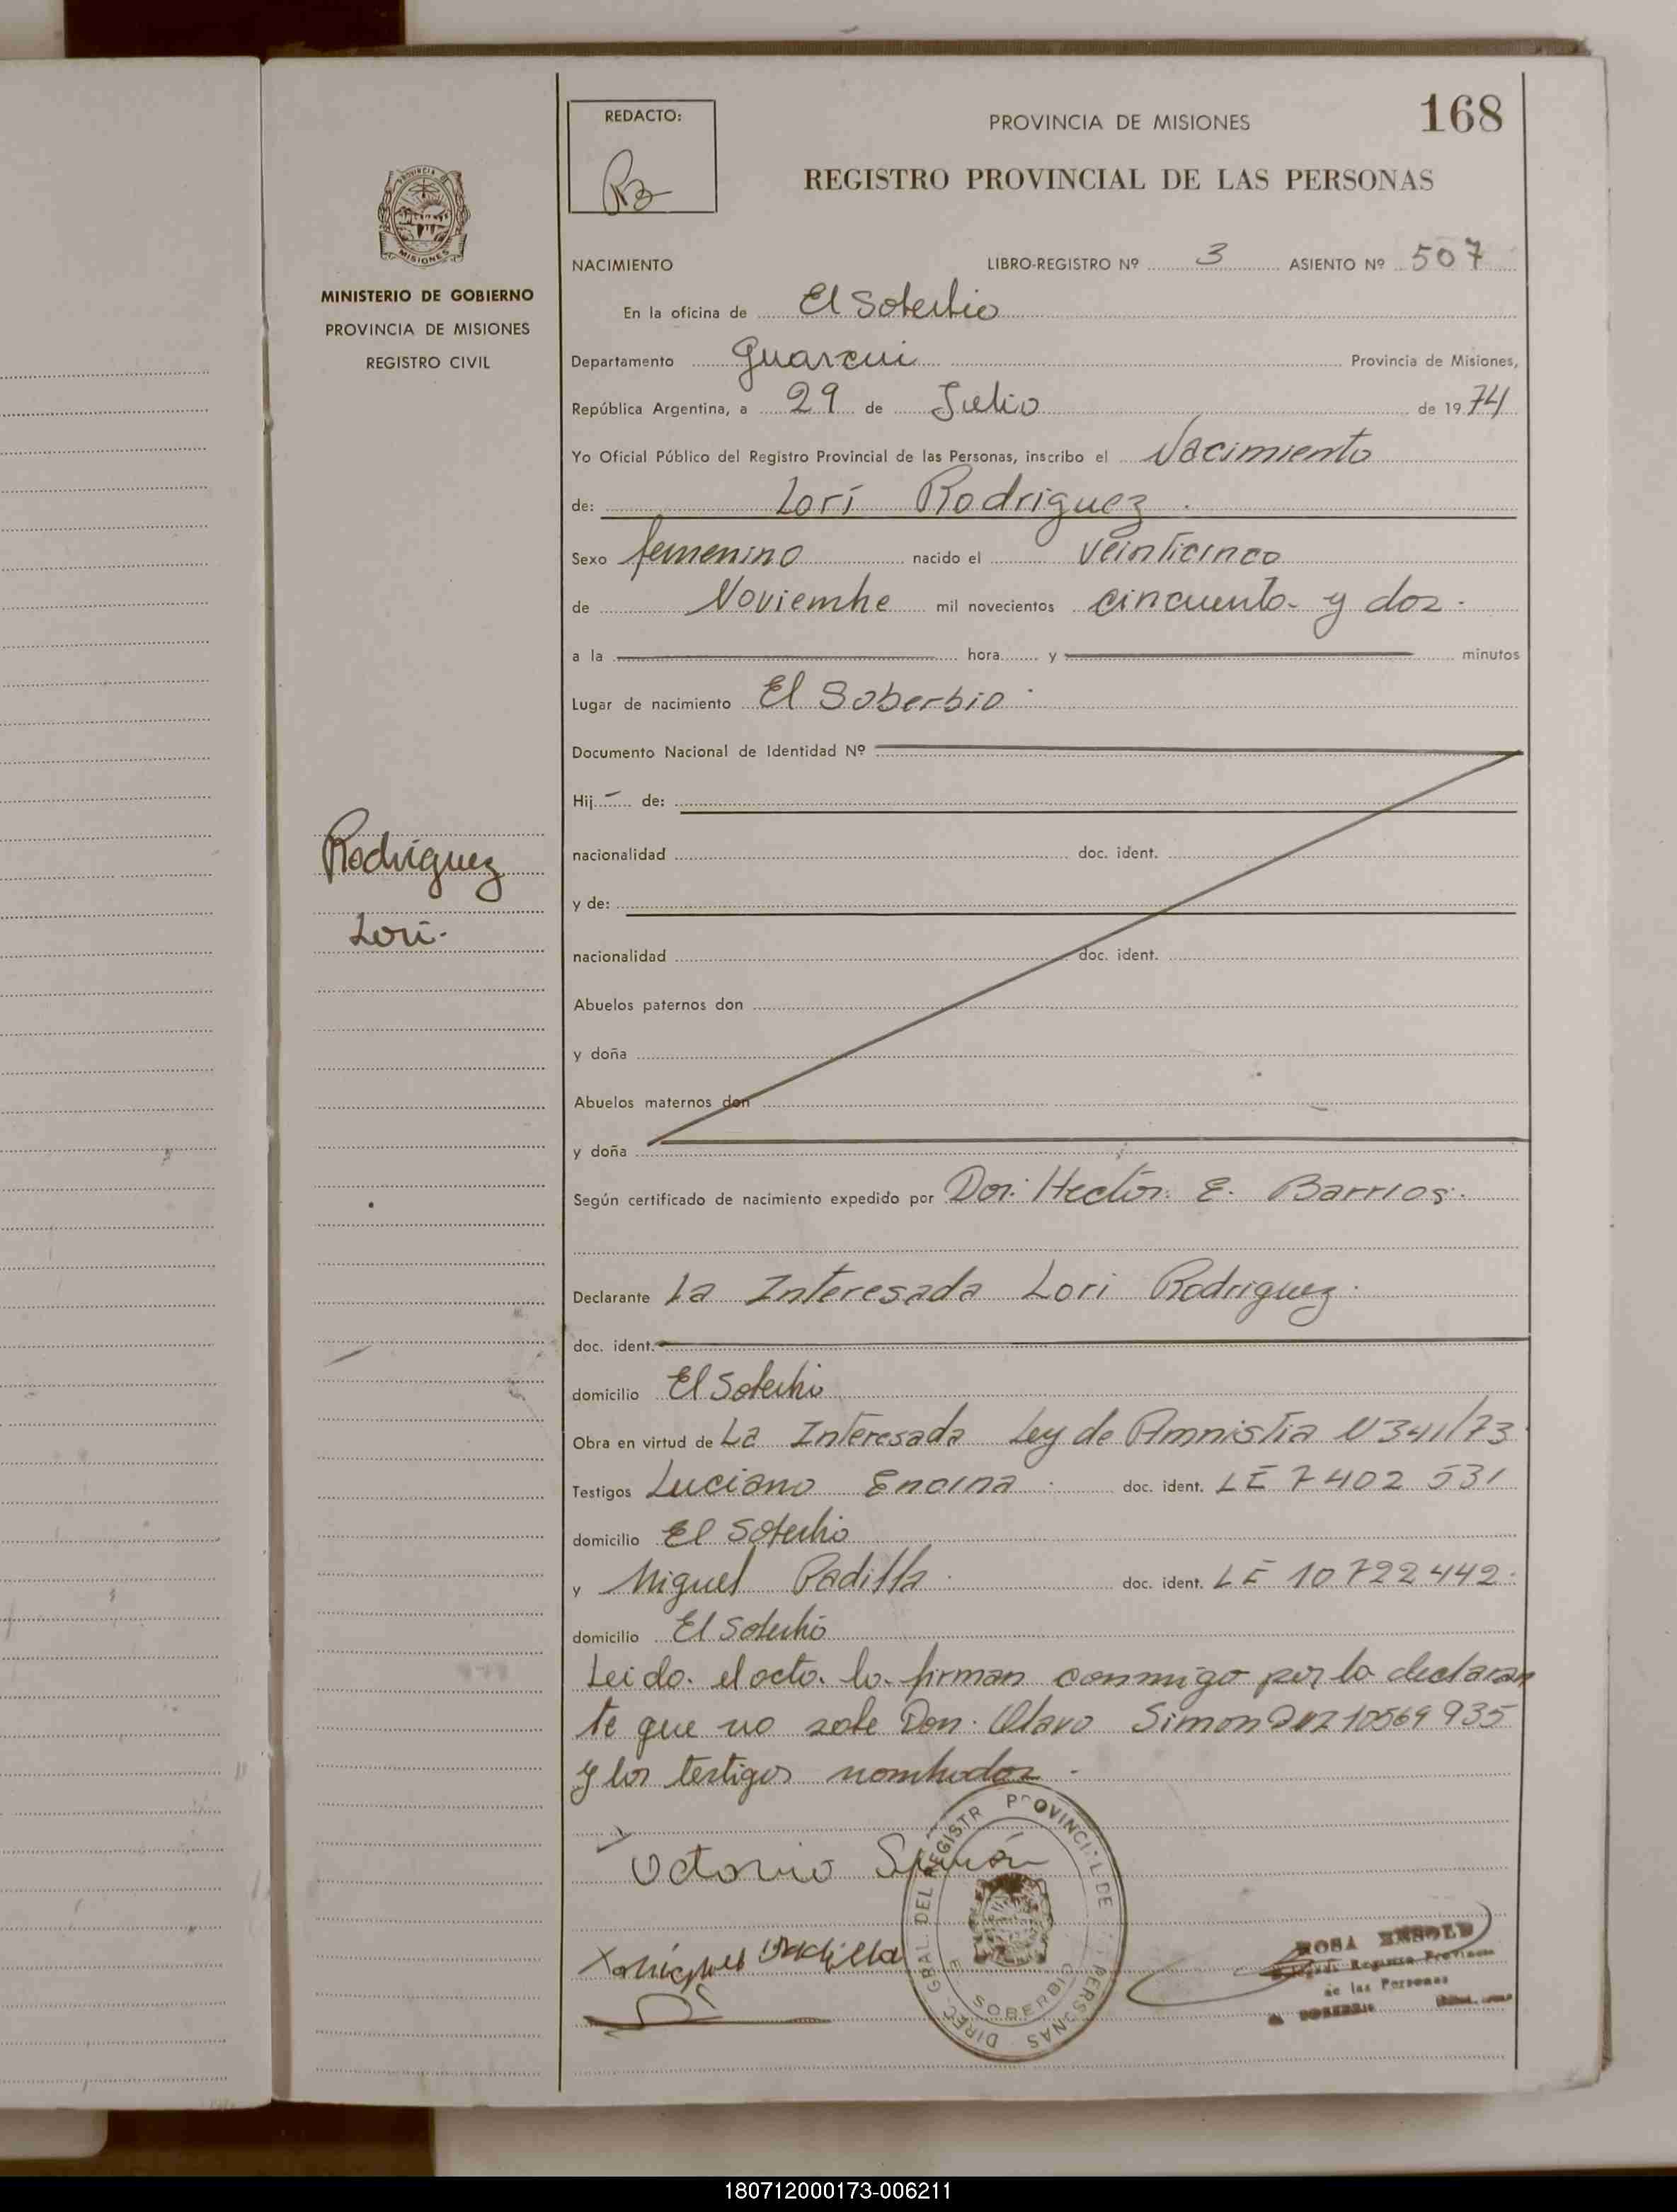 168
REDACTO:
PROVINCIA DE MISIONES
REGISTRO PROVINCIAL DE LAS PERSONAS
PROVINCIA DE
MISIONES
MINISTERIO DE GOBIERNO
PROVINCIA DE MISIONES
REGISTRO CIVIL
NACIMIENTO LIBRO-REGISTRO Nº 3 ASIENTO Nº 507
En la oficina de El Soberbio
Departamento Guaraní Provincia de Misiones,
República Argentina, a 29 de Julio de 1974
Yo Oficial Público del Registro Provincial de las Personas, inscribo el Nacimiento
de: Lorí Rodriguez.
Sexo femenino nacido el veinticinco
de Noviembre mil novecientos cincuenta y dos.
a la hora y minutos
Lugar de nacimiento El Soberbio.
Documento Nacional de Identidad Nº
Hij - de:
nacionalidad doc. ident.
Rodríguez
Lorí.
y de:
nacionalidad doc. ident.
Abuelos paternos don
y doña
Abuelos maternos don
y doña
Según certificado de nacimiento expedido por Dor. Hector E. Barrios.
Declarante La Interesada Lori Rodriguez.
doc. ident.
domicilio El Soberbio
Obra en virtud de La Interesada Ley de Amnistia N 341/73
Testigos Luciano Encina. doc. ident. LE 7402 531
domicilio El Soberbio
y Miguel Padilla. doc. ident. LE 10722.442.
domicilio El Soberbio
Leido el acto lo firman conmigo por la declaran
te que no sabe Don. Olavo Simon 10569935
y los testigos nombrados.
Octavio Simón
Miguel Padilla
DIREC. GRAL. DEL REGISTR PROVINCIAL DE PERSONAS
SOBERBIO
ROSA
Registro Provincial
de las Personas
SOBERBIO
180712000173-006211